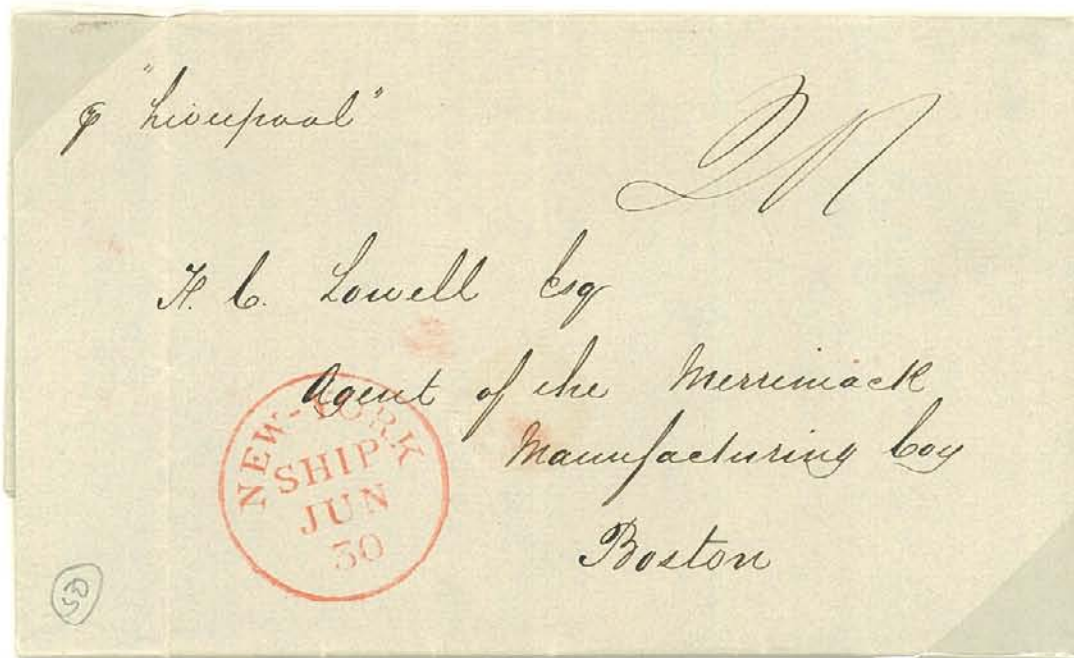 ℘ "Liverpool"
F. C. Lowell Esq
Agent of the Merrimack
Manufacturing Coy
Boston
NEW-YORK
SHIP
JUN
30